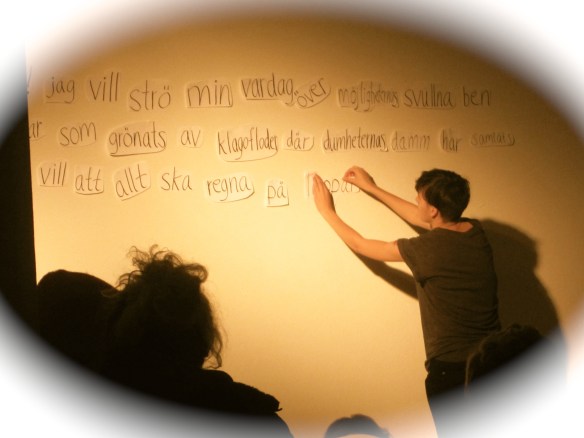 jag vill strö min vardag över möjligheternas svullna ben
som grönats av klagoflodet där dumheternas damm har samlats
vill att allt ska regna på